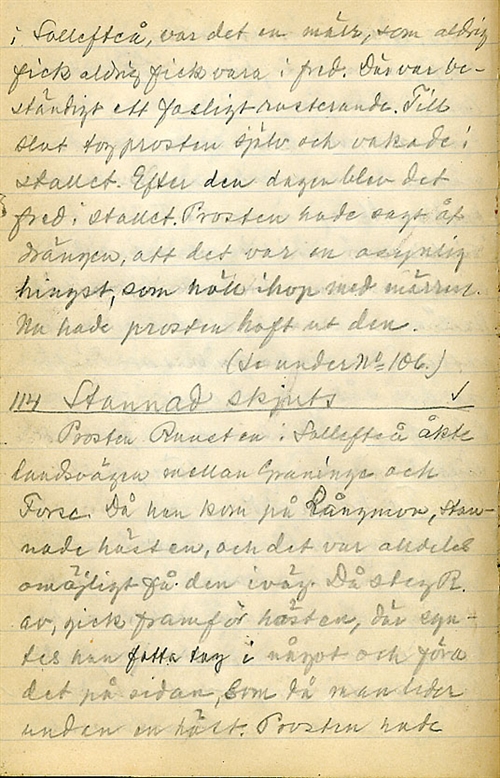 i Sollefteå, var det en märr, som aldrig
fick aldrig fick vara i fred. Där var be-
ständigt ett fasligt rusterande. Till
slut tog prosten själv och vakade i
stallet. Efter den dagen blev det
fred i stallet. Prosten hade sagt åt
drängen, att det var en osynlig
hingst, som höll ihop med märren.
Nu hade prosten haft ut den.
(Se under No 106.)
114 Stannad skjuts ✓
Prosten i Sollefteå åkte
landsvägen mellan Graninge och
Forse. Då han kom på Långmon, stan-
nade hästen, och det var alldeles
omöjligt få den iväg. Då steg R.
av, gick framför hästen, där syn-
tes han fatta tag i något och föra
det på sidan, som då man leder
undan en häst. Prosten hade